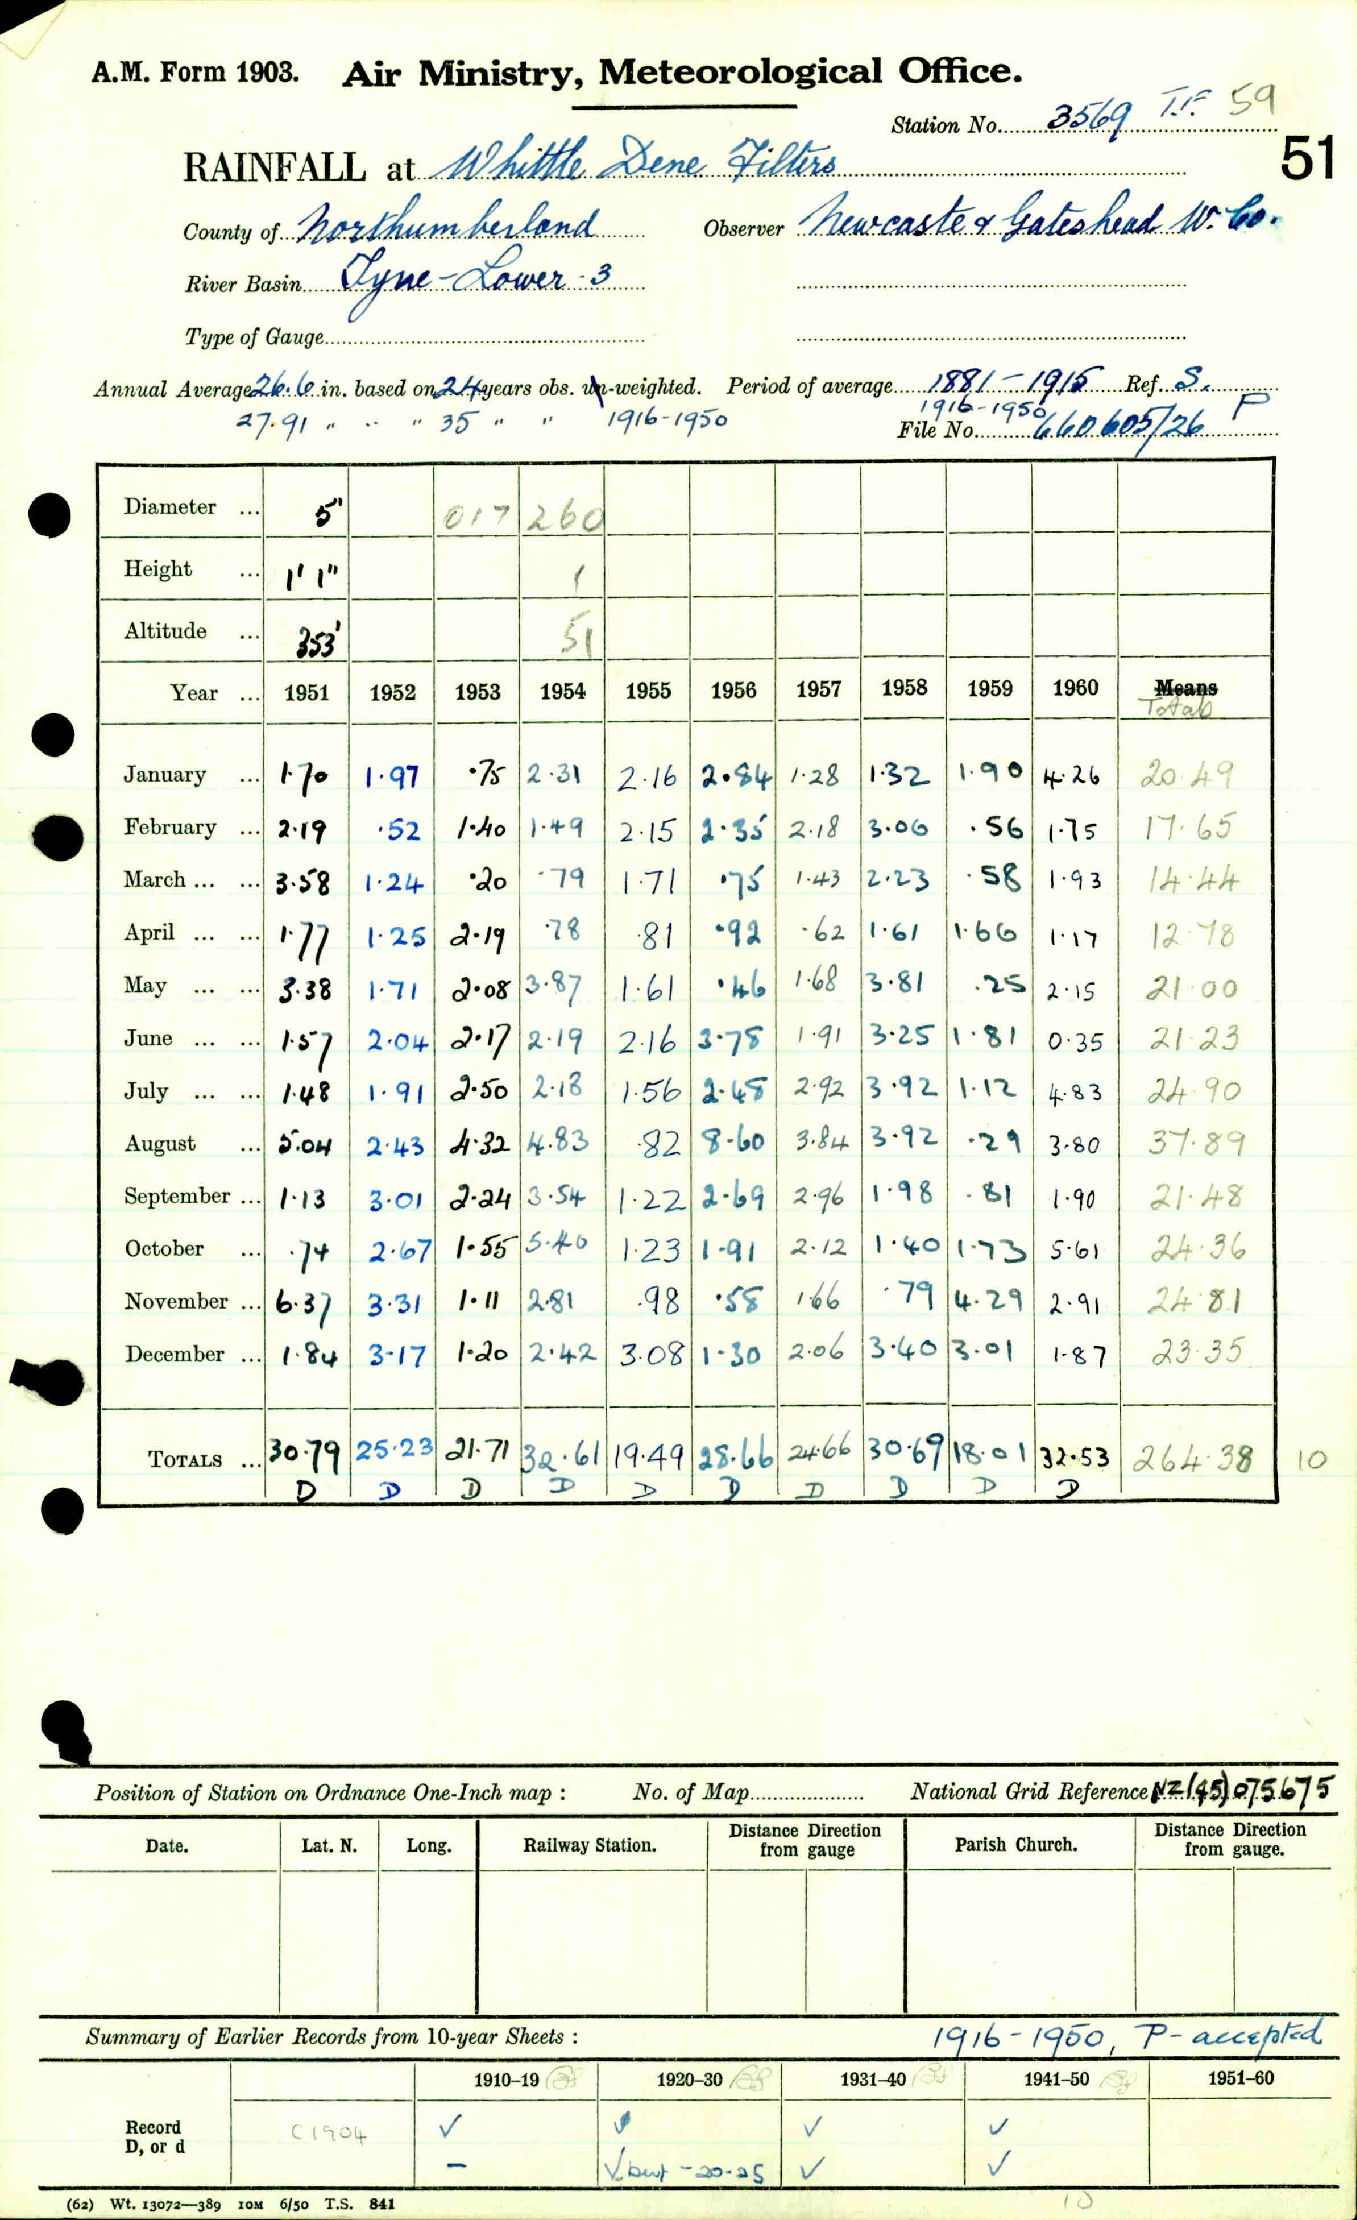 A.M. Form 1903. Air Ministry, Meteorological Office.
Station No. 3569 T.F. 59
51
RAINFALL at Whittle Dene Filters
County of Northumberland Observer Newcastle & Gateshead W. Co.
River Basin Tyne-Lower 3
Type of Gauge
Annual Average 26.6 in. based on 24 years obs. un-weighted. Period of average 1881-1915 Ref. S.
27.91 " " " 35 " " 1916-1950 1916-1950 P
File No. 660605/26
Diameter ... 5" 017 260
Height ... 1' 1" 1
Altitude ... 353' 51
Year ... 1951 1952 1953 1954 1955 1956 1957 1958 1959 1960 Means
Total
January ... 1.70 1.97 .75 2.31 2.16 2.84 1.28 1.32 1.90 4.26 20.49
February ... 2.19 .52 1.40 1.49 2.15 2.35 2.18 3.06 .56 1.75 17.65
March ... ... 3.58 1.24 .20 .79 1.71 .75 1.43 2.23 .58 1.93 14.44
April ... ... 1.77 1.25 2.19 .78 .81 .92 .62 1.61 1.66 1.17 12.78
May ... ... 3.38 1.71 2.08 3.87 1.61 .46 1.68 3.81 .25 2.15 21.00
June ... ... 1.57 2.04 2.17 2.19 2.16 3.78 1.91 3.25 1.81 0.35 21.23
July ... ... 1.48 1.91 2.50 2.18 1.56 2.48 2.92 3.92 1.12 4.83 24.90
August ... 5.04 2.43 4.32 4.83 .82 8.60 3.84 3.92 .29 3.80 37.89
September ... 1.13 3.01 2.24 3.54 1.22 2.69 2.96 1.98 .81 1.90 21.48
October ... .74 2.67 1.55 5.40 1.23 1.91 2.12 1.40 1.73 5.61 24.36
November ... 6.37 3.31 1.11 2.81 .98 .58 1.66 .79 4.29 2.91 24.81
December ... 1.84 3.17 1.20 2.42 3.08 1.30 2.06 3.40 3.01 1.87 23.35
TOTALS ... 30.79 25.23 21.71 32.61 19.49 28.66 24.66 30.69 18.01 32.53 264.38 10
D D D D D D D D D D
Position of Station on Ordnance One-Inch map : No. of Map National Grid Reference NZ(45)075675
Date. Lat. N. Long. Railway Station. Distance Direction from gauge Parish Church. Distance Direction from gauge.
Summary of Earlier Records from 10-year Sheets : 1916-1950, P-accepted
1910-19 1920-30 1931-40 1941-50 1951-60
Record C1904 ✓ ✓ ✓ ✓
D, or d – ✓ but -20-25 ✓ ✓
(62) Wt. 13072—389 10M 6/50 T.S. 841
10